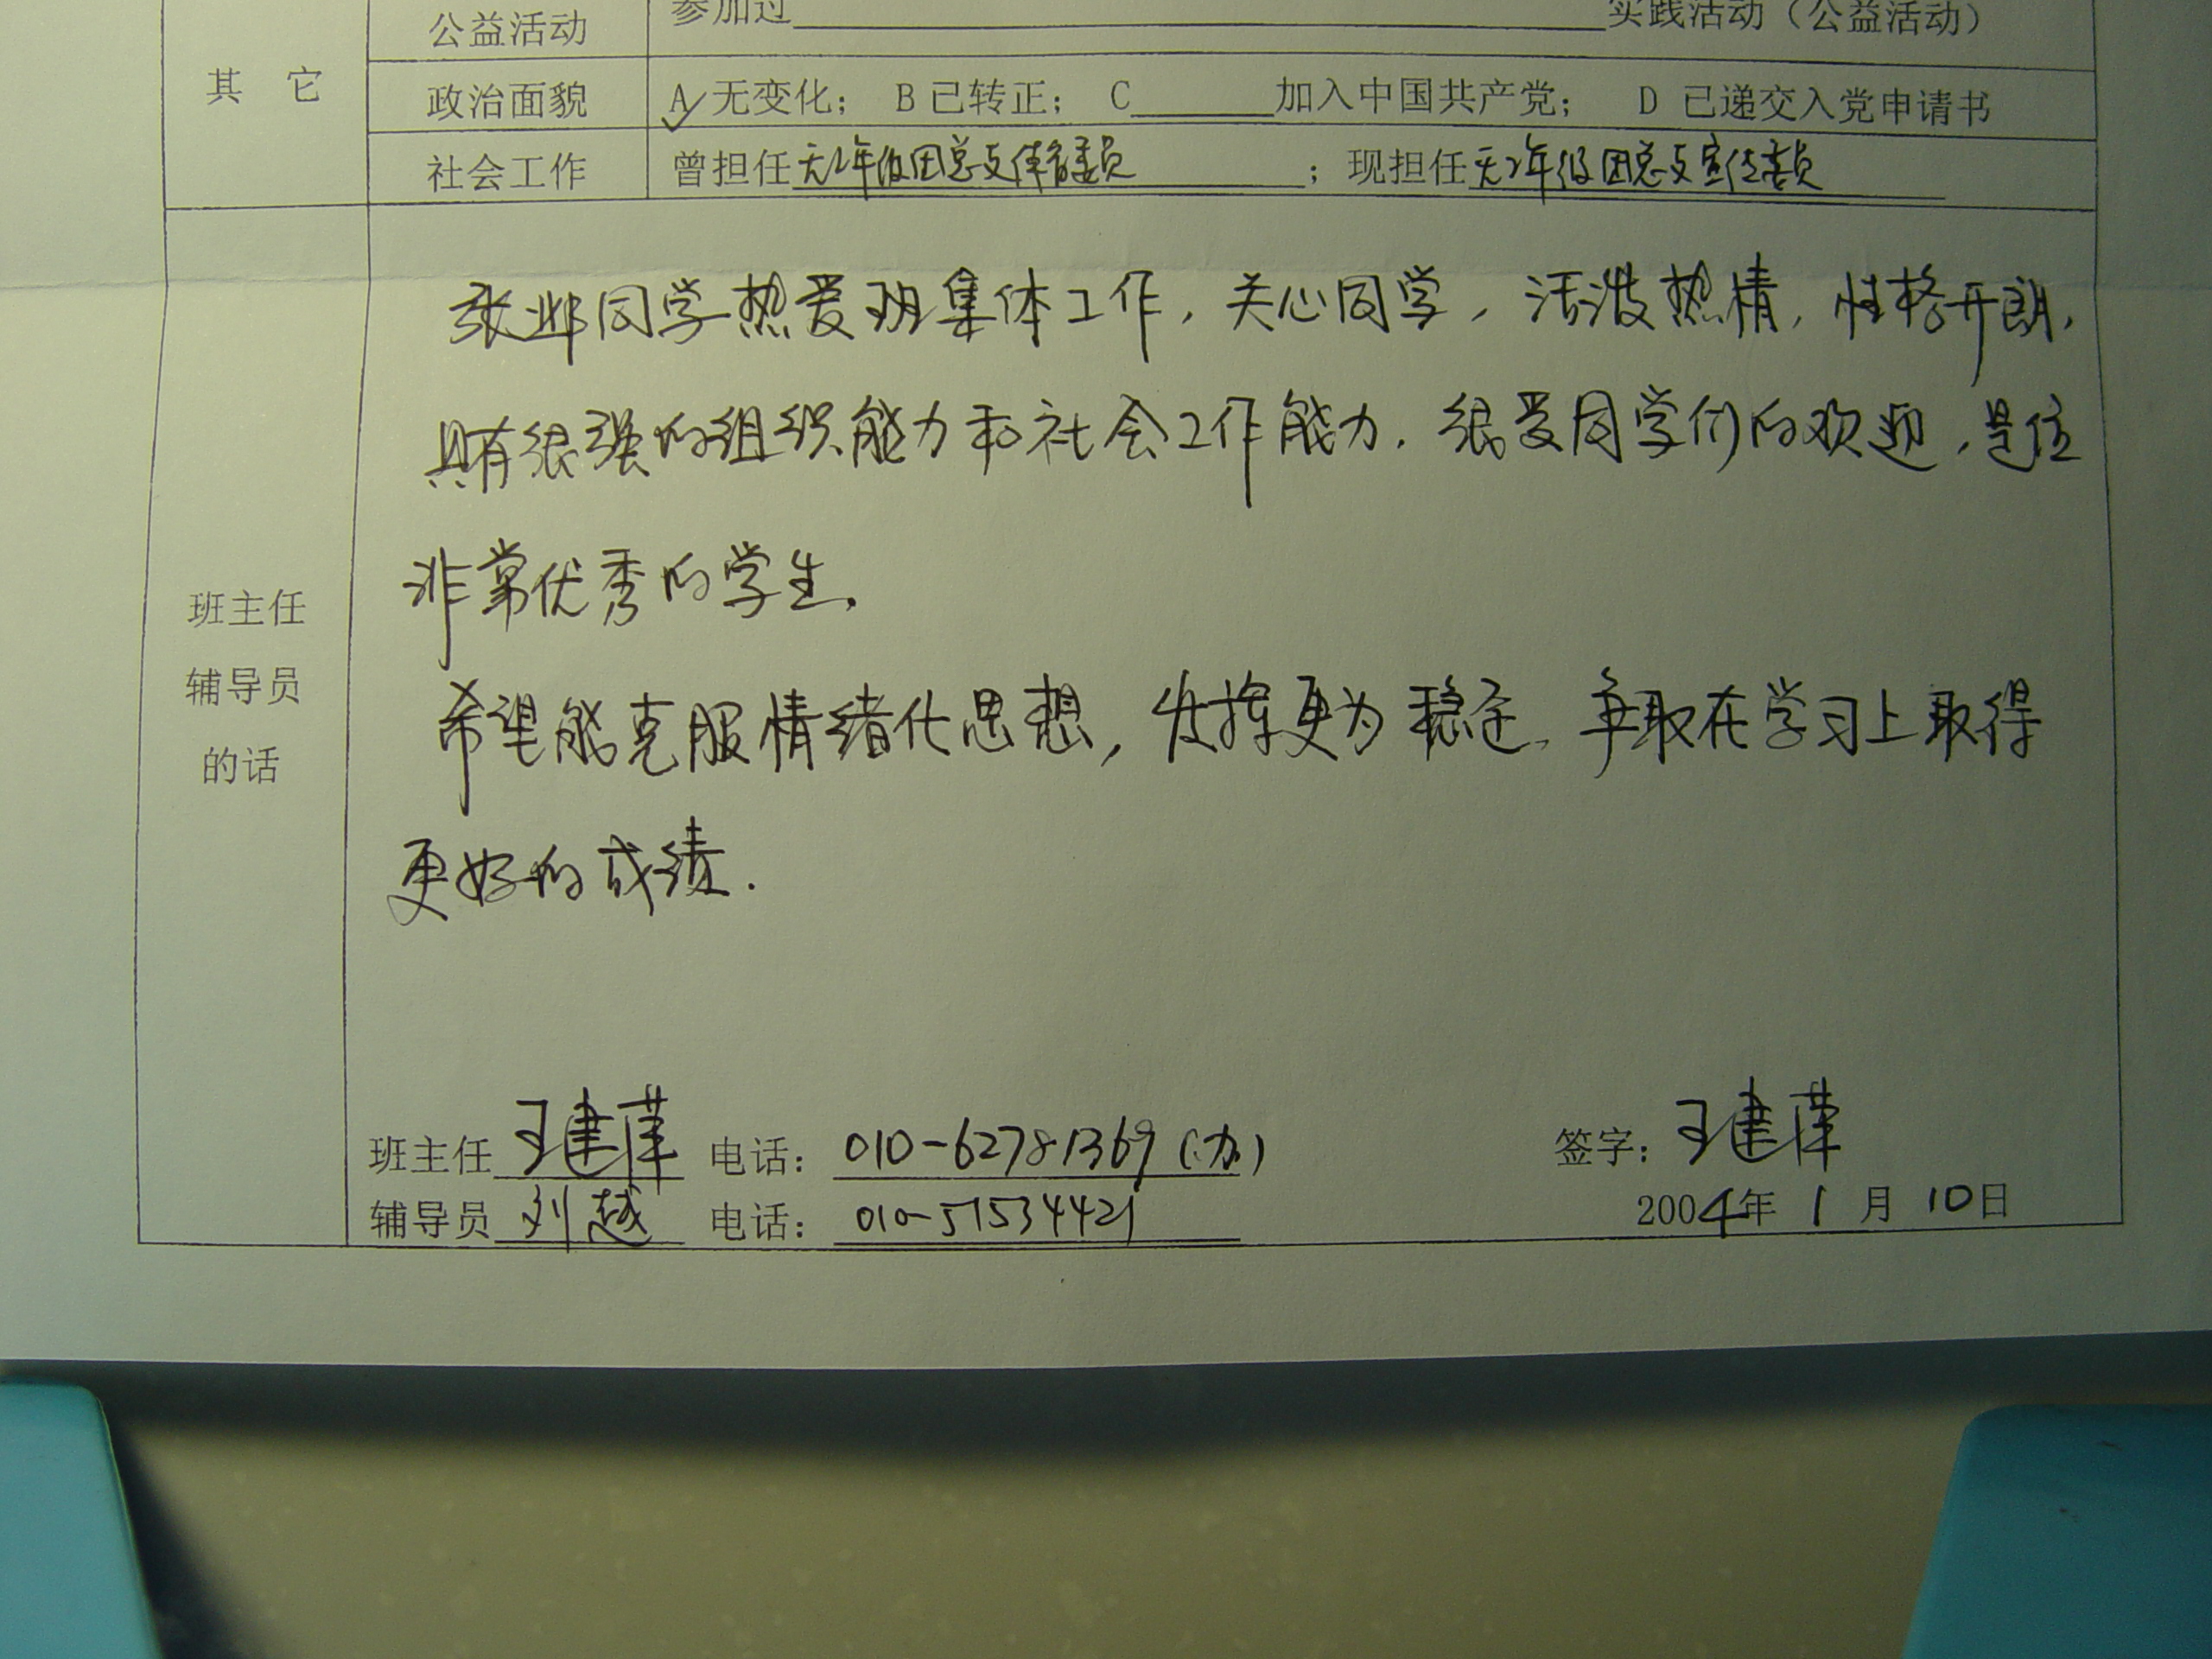 公益活动 参加过 实践活动（公益活动）
其 它
政治面貌 A 无变化； B 已转正； C 加入中国共产党； D 已递交入党申请书
社会工作 曾担任无2年级团总支体育委员；现担任无2年级团总支宣传委员
同学热爱班集体工作，关心同学，活泼热情，性格开朗，
具有很强的组织能力和社会工作能力．很受同学们的欢迎，是位
非常优秀的学生．
班主任
辅导员
的话
希望能克服情绪化思想，发挥更为稳定，争取在学习上取得
更好的成绩．
班主任 王建 电话：010-62781369（办） 签字：王建
辅导员 刘越 电话：010-51534421 2004年 1 月 10日